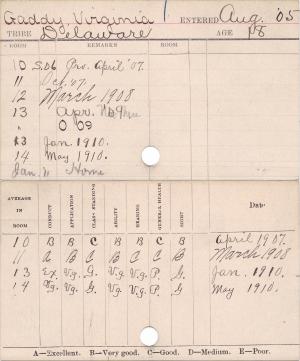 Gaddy, Virginia 1 ENTERED Aug. '05
TRIBE Delaware AGE 18
ROOM REMARKS ROOM
10 S.D6 Pro. April '07.
11 Oct. '07.
12 March 1908
13 Apr.
" O 09
13 Jan. 1910.
14 May 1910.
Jan. 11 Home
AVERAGE IN ROOM CONDUCT APPLICATION CLASS STANDING ABILITY READING GENERAL HEALTH SIGHT Date
10 B B C B B C B April 1907.
11 A B C B C B C March 1908
13 Ex. V.g. G. V.g. V.g. P. G. Jan. 1910.
14 V.g. V.g. G. V.g. V.g. P. G. May 1910.
A—Excellent. B—Very good. C—Good. D—Medium. E—Poor.